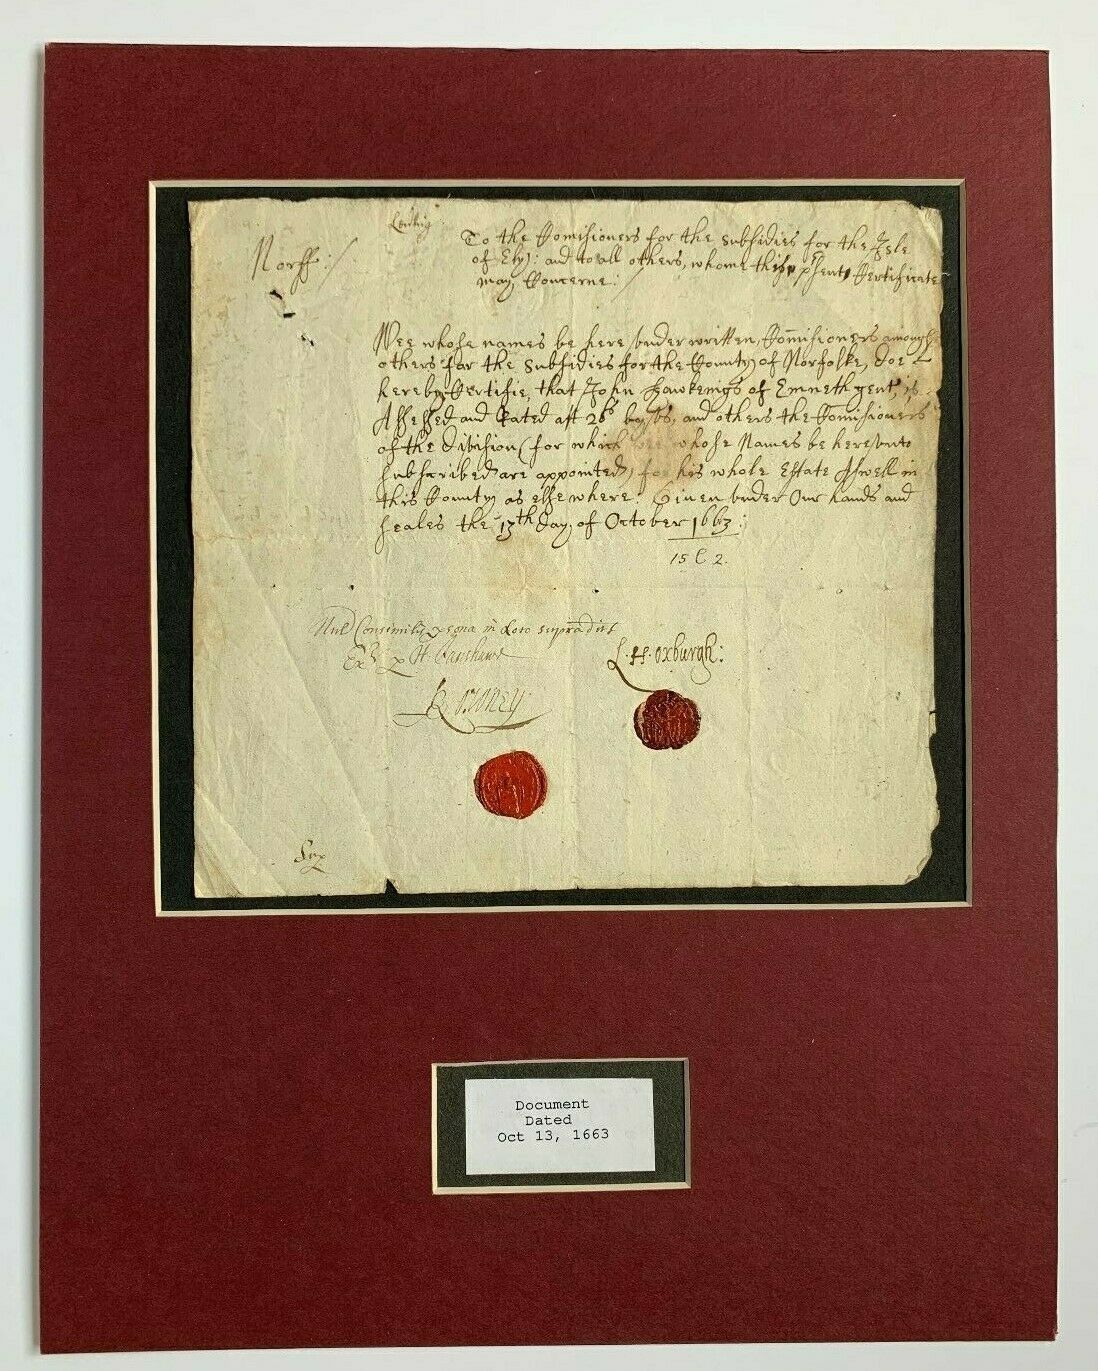 Norff:/
To the Comisioners for the subsidies for the Isle
of Ely: and to all others, whome this psent Certificate
may Concerne:/
Wee whose names be here vnder written, Comisioners amongst
others for the Subsidies for the County of Norfolke, doe
hereby Certifie, that John Hawkenigs of Emneth gent, is
Assessed and Rated att by vs, and others the Comisioners
of the division (for which wee whose Names be herevnto
subscribed are appointed) for his whole Estate Aswell in
this County as elsewhere: Given vnder Our hands and
seales the 13th day of October 1663:
15 C 2.
Nul Consimilis psona in supradict
Exr p H
L: H: oxburgh:
Document
Dated
Oct 13, 1663